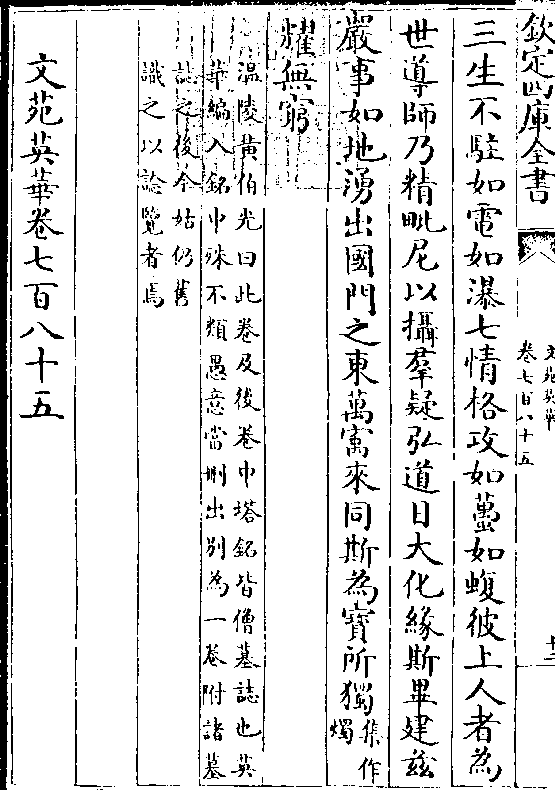 欽定四庫全書
文苑英華
卷七百八十五
十二
三生不駐如電如瀑七情格攻如蠆如蝮彼上人者為
世導師乃精毗尼以攝羣疑弘道日大化緣斯畢建茲
嚴事如地湧出國門之東萬㝢來同斯為寳所獨集作燭
耀無窮
溫陵黄伯光曰此卷及後卷中塔銘皆僧墓誌也英
華編入銘中殊不類愚意當刪出别為一卷附諸墓
誌之後今姑仍舊
識之以諗覽者焉
文苑英華卷七百八十五